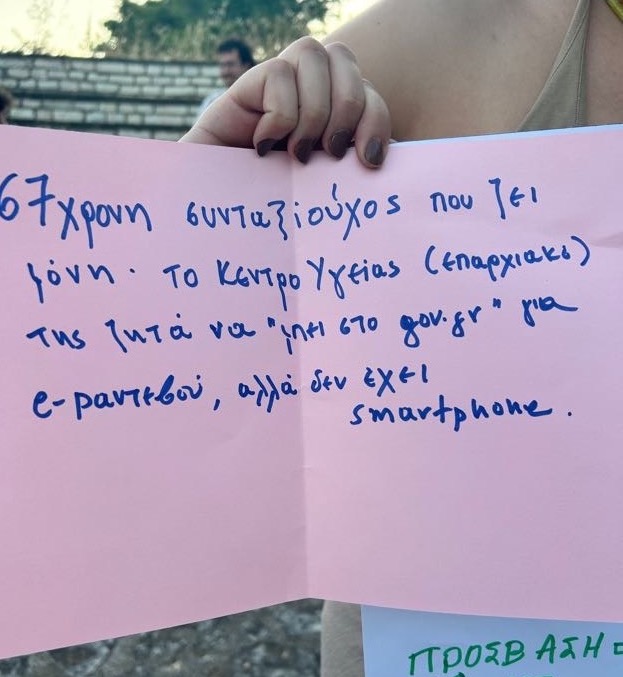 67χρονη συνταξιούχος που ζει
μόνη. Το Κέντρο Υγείας (επαρχιακό)
της ζητά να "μπει στο gov.gr" για
e-ραντεβού, αλλά δεν έχει
smartphone.
ΠΡΟΣΒΑΣΗ